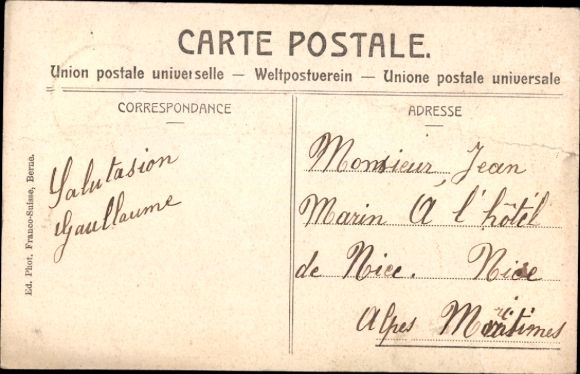 CARTE POSTALE.
Union postale universelle — Weltpostverein — Unione postale universale
CORRESPONDANCE
Salutasion
Gaullaume
Ed. Phot. Franco-Suisse, Berne.
ADRESSE
Monsieur Jean
Marin A l'hôtel
de Nice. Nice
Alpes Maritimes